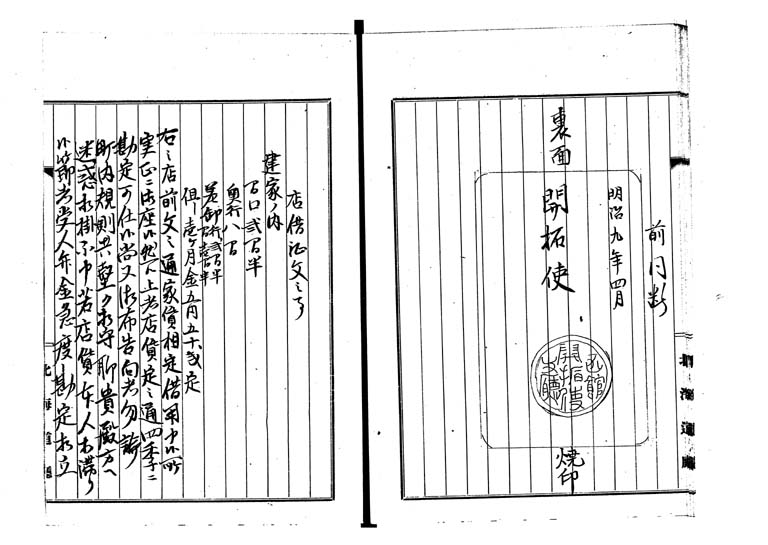 前同断
明治九年四月
裏面
開拓使
焼印
北海道
店借証文之事
建家ノ内
間口弐間半
奥行八間
但壱ヶ月金五円五十銭定
右之店前文之通家賃相定借用申候所
実正ニ御座候然ル上者店賃定之通四季ニ
勘定可仕候尚又御布告向者勿論
町内規則共堅ク相守聊貴殿方へ
迷惑相掛不申若店賃本人相滞り
候節者受人弁金急度勘定相立
北海道